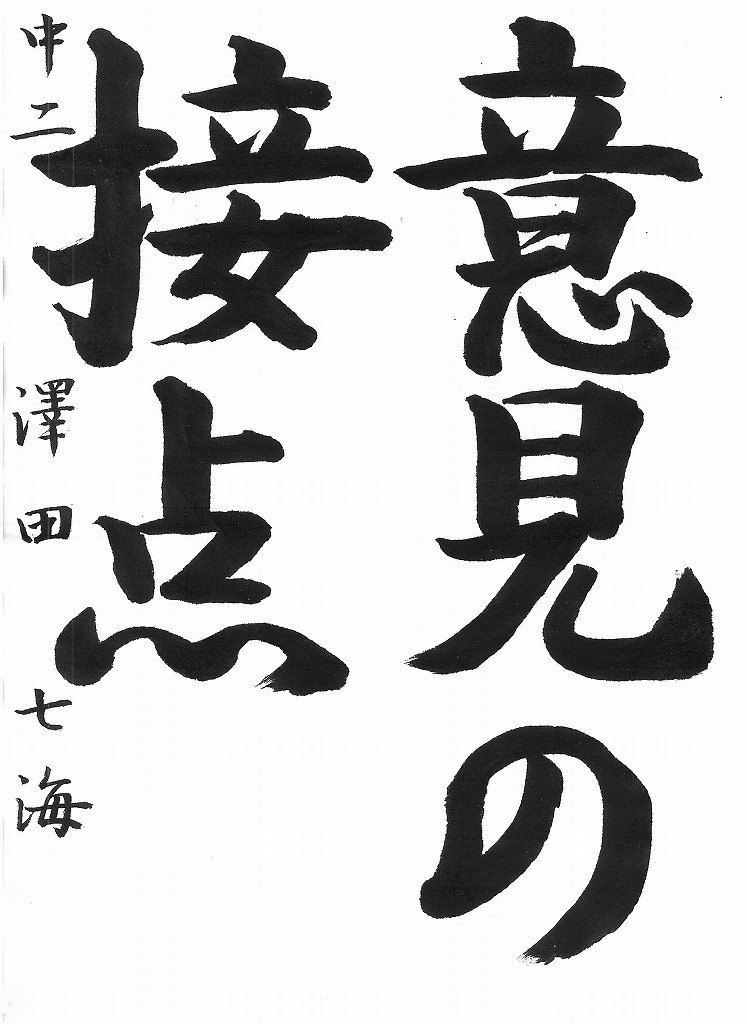 意見の
接点
中二 澤田 七海